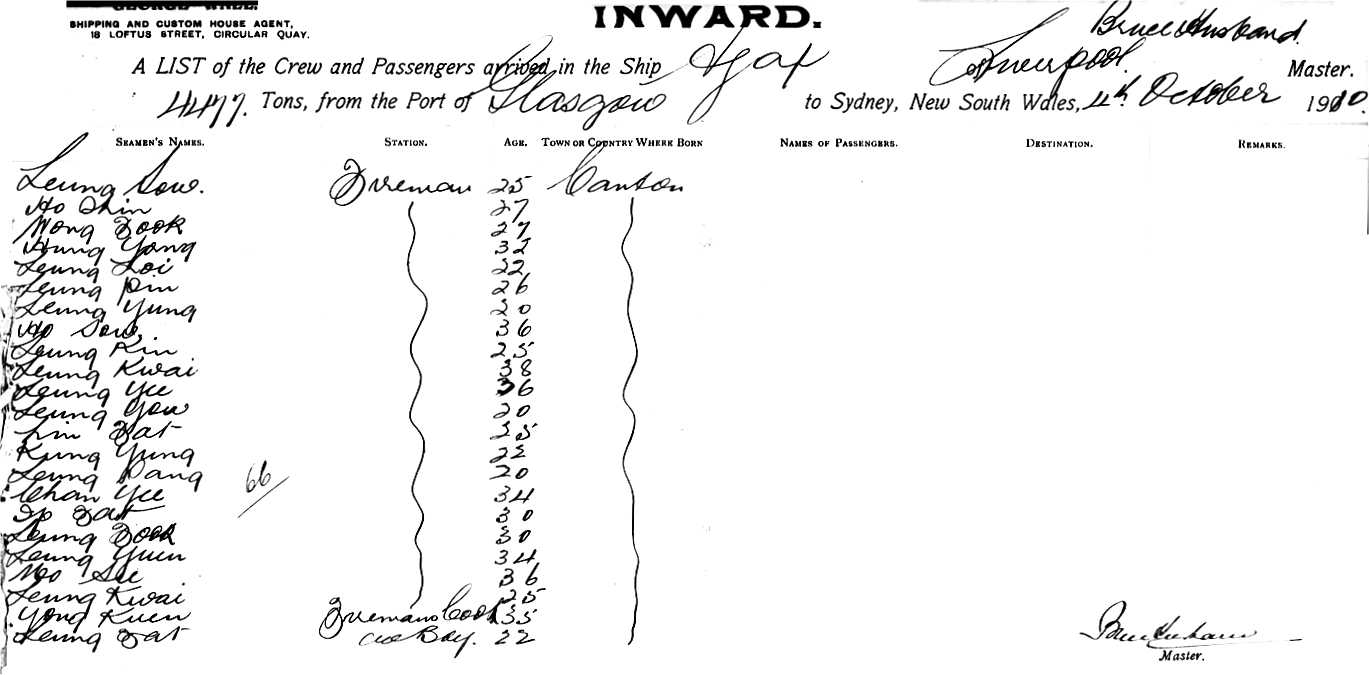 SHIPPING AND CUSTOM HOUSE AGENT,
18 LOFTUS STREET, CIRCULAR QUAY.
INWARD.
A LIST of the Crew and Passengers arrived in the Ship Ajax of Liverpool. Bruce Husband. Master.
4477. Tons, from the Port of Glasgow to Sydney, New South Wales, 4th October 1910.
SEAMEN'S NAMES. STATION. AGE. TOWN OR COUNTRY WHERE BORN NAMES OF PASSENGERS. DESTINATION. REMARKS.
Leung Sow. Fireman 25 Canton
Ho Shin 27
Wong Fook 27
Hung Yong 32
Leung Loi 22
Leung Pin 26
Leung Yung 20
Ho Sow. 36
Leung Kin 25
Leung Kwai 38
Leung Yee 36
Leung Yow 20
Lim Fat 25
Kung Yung 22
Leung Pang 20
66
Chan Yee 34
Ip Fat 30
Leung Fook 30
Leung Yuen 34
Mo See 36
Leung Kwai 25
Yong Kuen Firemans Cook 35
Leung Fat do Boy. 22
Master.